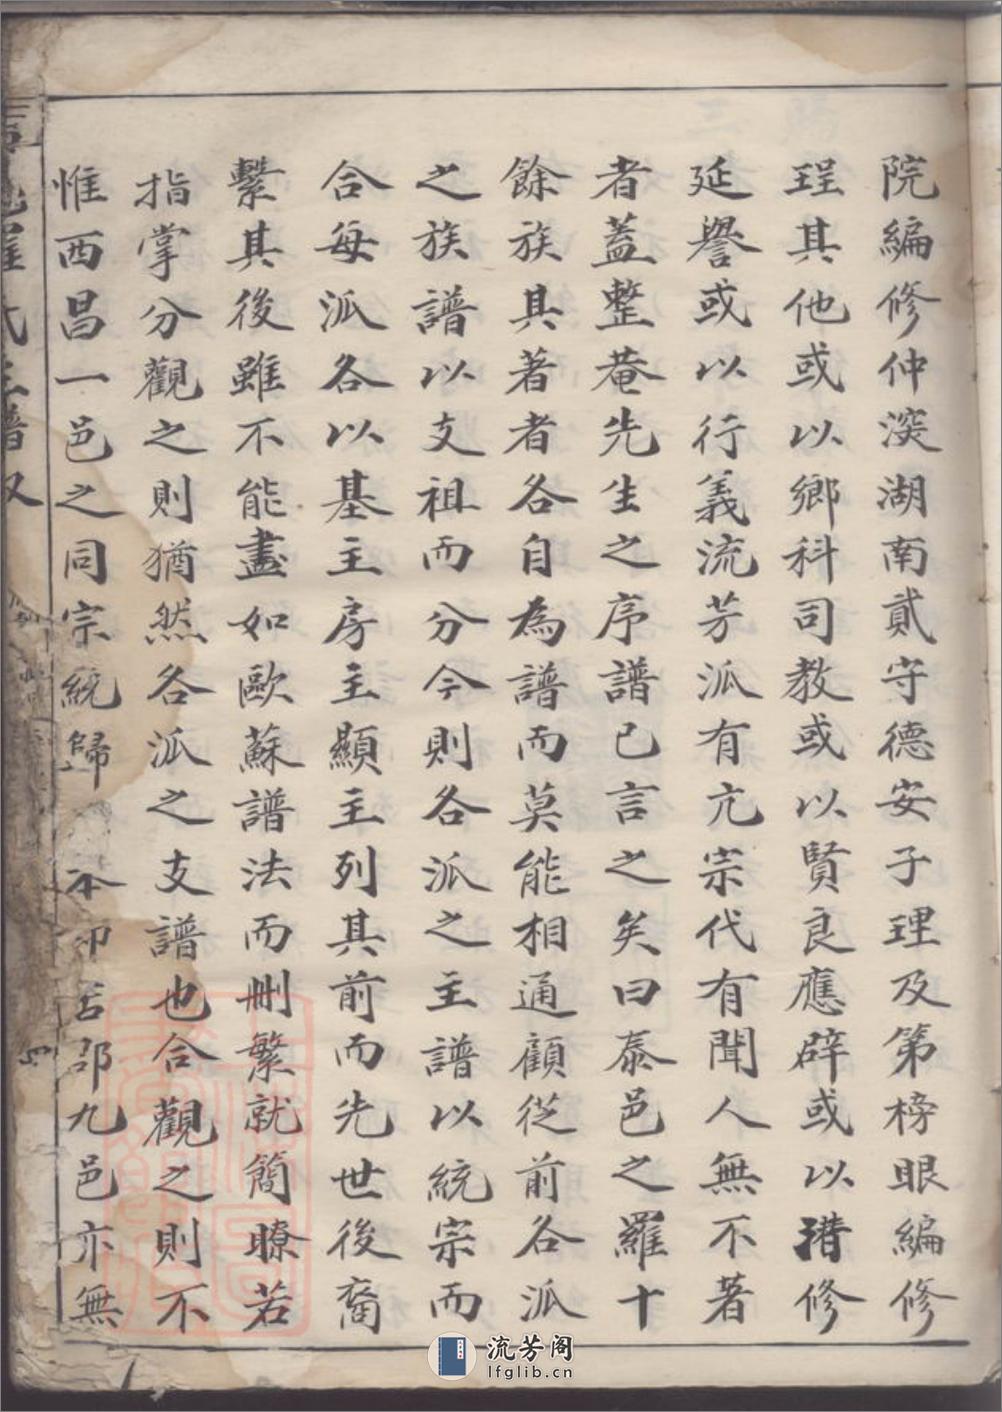 院編修仲深湖南貳守德安子理及第榜眼編修
珵其他或以鄉科司教或以賢良應辟或以潛修
延譽或以行義流芳派有亢宗代有聞人無不著
者蓋整菴先生之序譜已言之矣曰泰邑之羅十
餘族其著者各自為譜而莫能相通顧從前各派
之族譜以支祖而分今則各派之主譜以統宗而
合每派各以基主房主顯主列其前而先世後裔
繫其後雖不能盡如歐蘇譜法而刪繁就簡瞭若
指掌分觀之則猶然各派之支譜也合觀之則不
惟西昌一邑之同宗統歸 本即吉郡九邑亦無
羅氏主譜
流芳阁
lfglib.cn